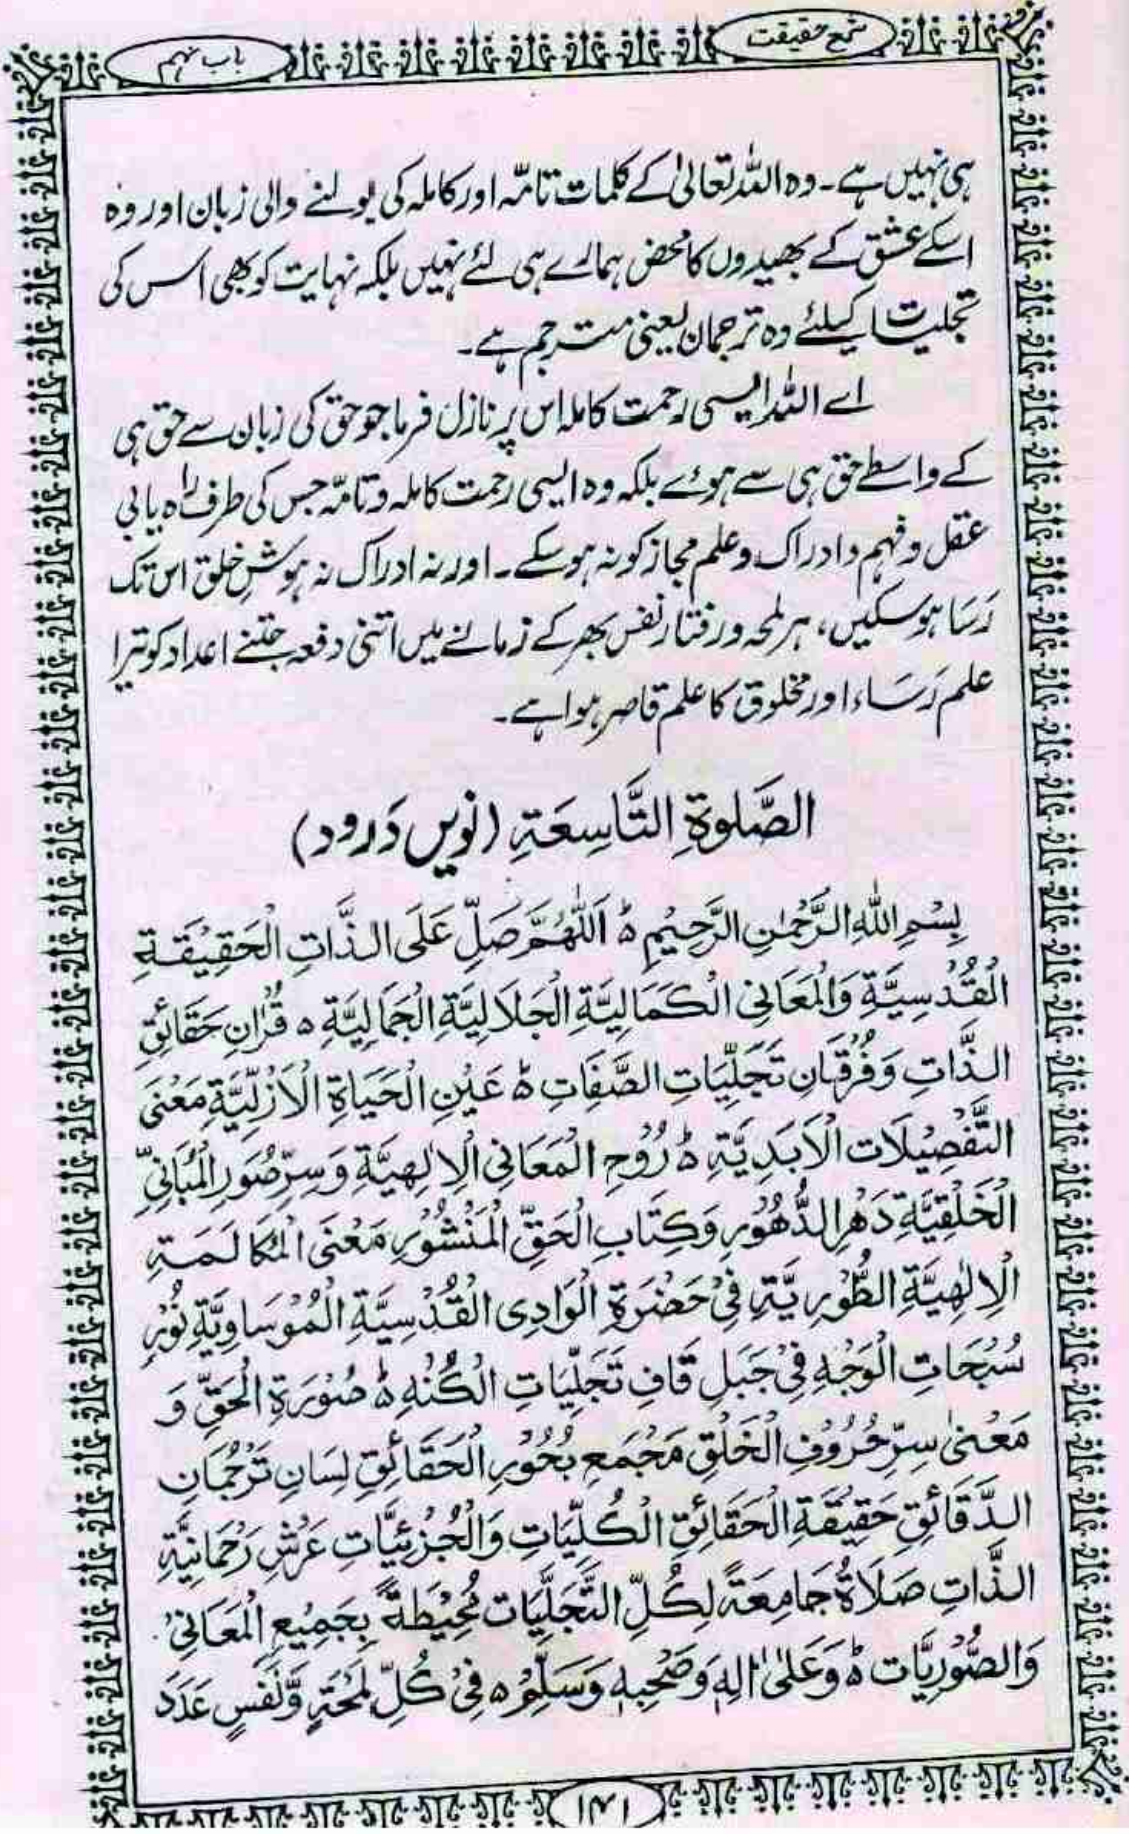 شمع حقیقت
باب نہم
ہی نہیں ہے۔ وہ اللہ تعالیٰ کے کلمات تامّہ اور کاملہ کی بولنے والی زبان اور وہ
اسکے عشق کے بھیدوں کا محض ہمارے ہی لئے نہیں بلکہ نہایت کو بھی اس کی
تجلیت کیلئے وہ ترجمان یعنی مترجم ہے۔
اے اللہ ایسی رحمت کاملہ اس پر نازل فرما جو حق کی زبان سے حق ہی
کے واسطے حق ہی سے ہوے بلکہ وہ ایسی رحمت کاملہ و تامّہ جس کی طرف راہ یابی
عقل و فہم و ادراک و علم مجاز کو نہ ہو سکے۔ اور نہ ادراک نہ ہوش خلق اس تک
رَسَا ہو سکیں، ہر لمحہ و رفتار نفس بھر کے زمانے میں اتنی دفعہ جتنے اعداد کو تیرا
علم رَسَاء اور مخلوق کا علم قاصر ہوا ہے۔
الصَّلٰوةِ التَّاسِعَةِ (نویں دَرود)
بِسْمِ اللهِ الرَّحْمٰنِ الرَّحِيْمِ ۝ اَللّٰهُمَّ صَلِّ عَلَى الذَّاتِ الْحَقِيْقَةِ
الْقُدْسِيَّةِ وَالْمَعَانِى الْكَمَالِيَّةِ الْجَلَالِيَّةِ الْجَمَالِيَّةِ ۝ قُرْاٰنِ حَقَائِقِ
الذَّاتِ وَفُرْقَانِ تَجَلِّيَاتِ الصَّفَاتِ ۝ عَيْنِ الْحَيَاةِ الْاَزَلِيَّةِ مَعْنَى
التَّفْصِيْلَاتِ الْاَبَدِيَّةِ ۝ رُوْحِ الْمَعَانِى الْاِلٰهِيَّةِ وَسِرِّ صُوَرِ الْمَبَانِىِّ
الْخَلْقِيَّةِ دَهْرِ الدُّهُوْرِ وَكِتَابِ الْحَقِّ الْمَنْشُوْرِ مَعْنَى الْمُكَالَمَةِ
الْاِلٰهِيَّةِ الطُّوْرِيَّةِ فِىْ حَضْرَةِ الْوَادِى الْقُدْسِيَّةِ الْمُوْسَاوِيَّةِ نُوْرِ
سُبُحَاتِ الْوَجْهِ فِىْ جَبَلِ قَافِ تَجَلِّيَاتِ الْكُنْهِ ۝ صُوْرَةِ الْحَقِّ وَ
مَعْنىٰ سِرِّ حُرُوْفِ الْخَلْقِ مَجْمَعِ بُحُوْرِ الْحَقَائِقِ لِسَانِ تَرْجُمَانِ
الدَّقَائِقِ حَقِيْقَةِ الْحَقَائِقِ الْكُلِّيَاتِ وَالْجُزْئِيَّاتِ عَرْشِ رَحْمَانِيَّةِ
الذَّاتِ صَلَاةً جَامِعَةً لِكُلِّ التَّجَلِّيَاتِ مُحِيْطَةً بِجَمِيْعِ الْمَعَانِىْ
وَالصُّوْرِيَّات ۝ وَعَلىٰ اٰلِهٖ وَصَحْبِهٖ وَسَلِّمْ ۝ فِىْ كُلِّ لَمْحَةٍ وَّنَفَسٍ عَدَدَ
۱۴۱